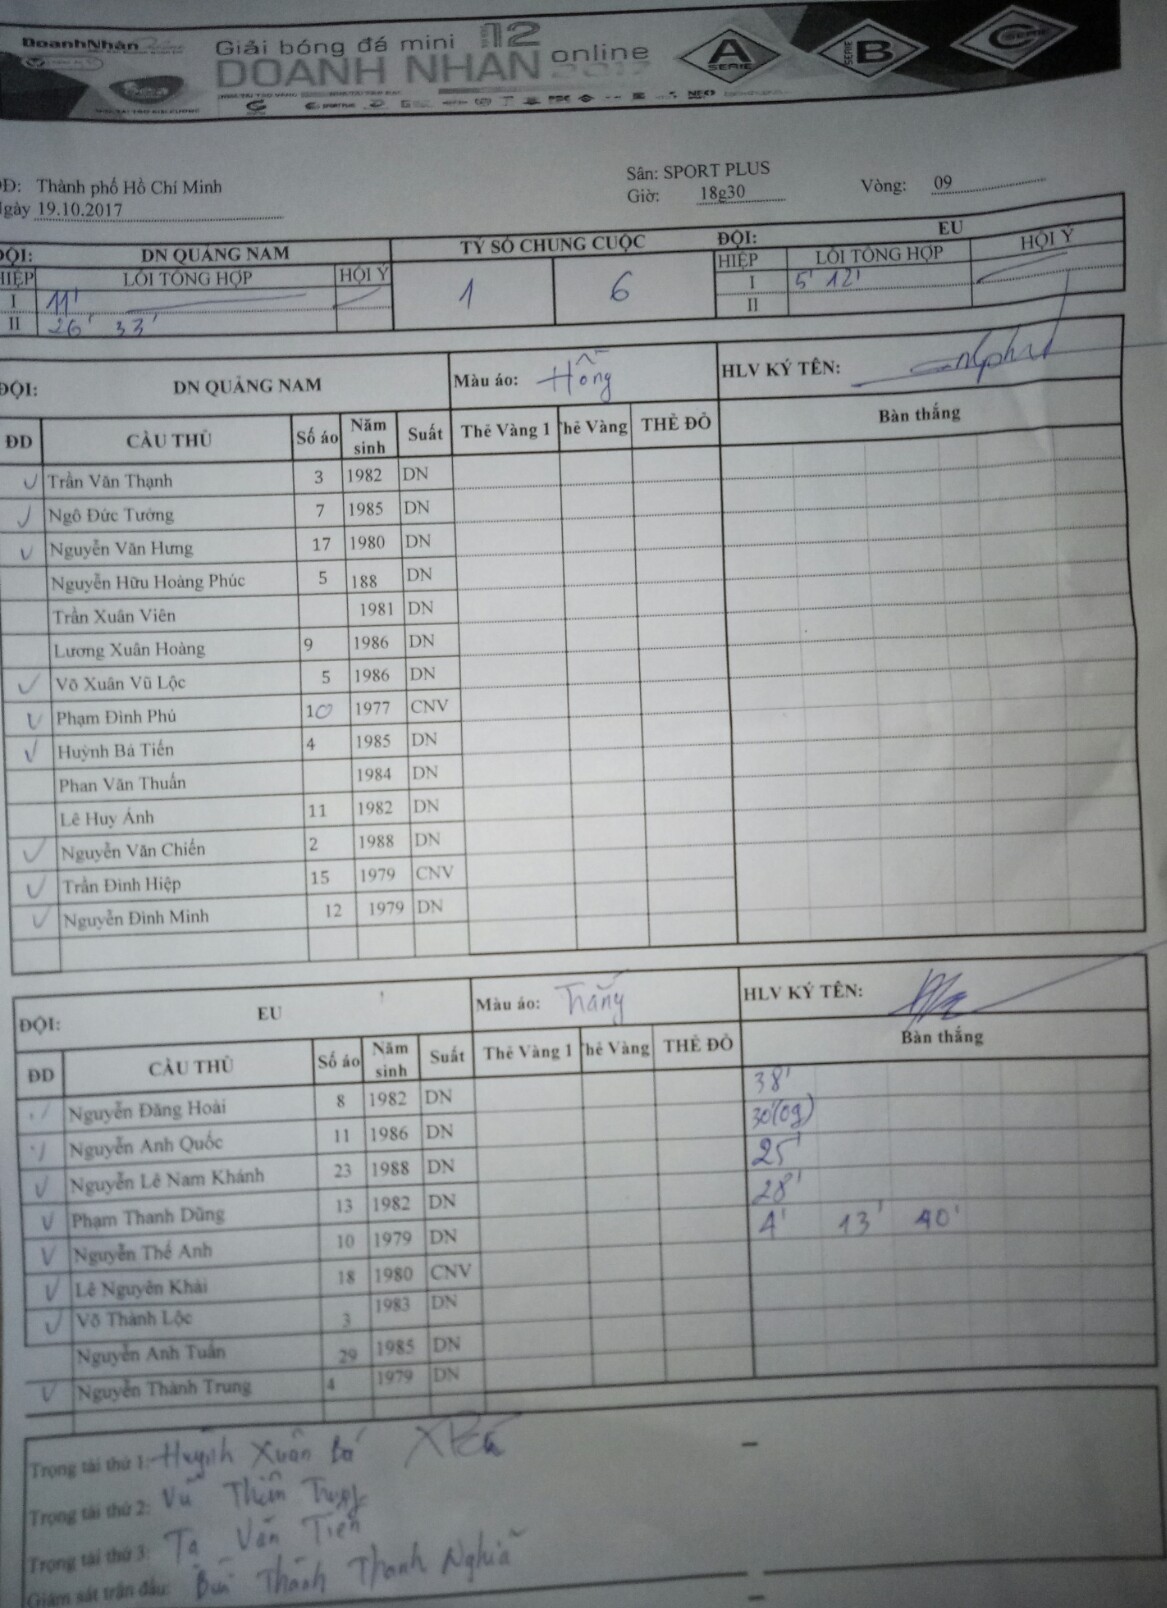 DoanhNhân
Giải bóng đá mini 12 online
DOANH NHÂN 2017
A SERIE
B SERIE
C SERIE
ĐĐ: Thành phố Hồ Chí Minh
Sân: SPORT PLUS
Ngày 19.10.2017
Giờ: 18g30
Vòng: 09
ĐỘI: DN QUẢNG NAM TỶ SỐ CHUNG CUỘC ĐỘI: EU
HIỆP LỖI TỔNG HỢP HỘI Ý 1 6 HIỆP LỖI TỔNG HỢP HỘI Ý
I 11' I 5' 12'
II 26' 33' II
ĐỘI: DN QUẢNG NAM Màu áo: Hồng HLV KÝ TÊN:
ĐD CẦU THỦ Số áo Năm sinh Suất Thẻ Vàng 1 Thẻ Vàng THẺ ĐỎ Bàn thắng
Trần Văn Thạnh 3 1982 DN
Ngô Đức Tưởng 7 1985 DN
Nguyễn Văn Hưng 17 1980 DN
Nguyễn Hữu Hoàng Phúc 5 188 DN
Trần Xuân Viên 1981 DN
Lương Xuân Hoàng 9 1986 DN
Võ Xuân Vũ Lộc 5 1986 DN
Phạm Đình Phú 10 1977 CNV
Huỳnh Bá Tiến 4 1985 DN
Phan Văn Thuấn 1984 DN
Lê Huy Ánh 11 1982 DN
Nguyễn Văn Chiến 2 1988 DN
Trần Đình Hiệp 15 1979 CNV
Nguyễn Đình Minh 12 1979 DN
ĐỘI: EU Màu áo: Trắng HLV KÝ TÊN:
ĐD CẦU THỦ Số áo Năm sinh Suất Thẻ Vàng 1 Thẻ Vàng THẺ ĐỎ Bàn thắng
Nguyễn Đăng Hoài 8 1982 DN 38'
Nguyễn Anh Quốc 11 1986 DN 30'(og)
Nguyễn Lê Nam Khánh 23 1988 DN 25'
Phạm Thanh Dũng 13 1982 DN 28'
Nguyễn Thế Anh 10 1979 DN 4' 13' 40'
Lê Nguyên Khải 18 1980 CNV
Võ Thành Lộc 3 1983 DN
Nguyễn Anh Tuấn 29 1985 DN
Nguyễn Thành Trung 4 1979 DN
Trọng tài thứ 1: Huỳnh Xuân Bá
Trọng tài thứ 2: Vũ Thiên Trung
Trọng tài thứ 3: Tạ Văn Tiến
Giám sát trận đấu: Bùi Thành Thanh Nghĩa